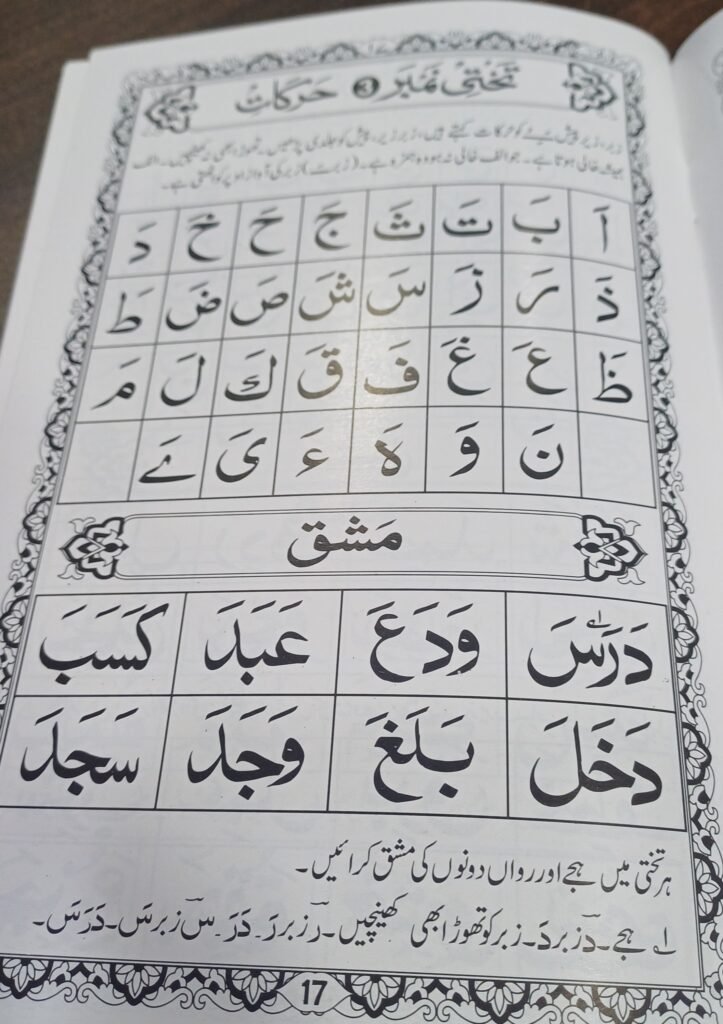 تختی نمبر 3 حرکات
زبر، زیر، پیش کو حرکات کہتے ہیں، زبر، زیر، پیش کو جلدی پڑھیں۔ تھوڑا بھی نہ کھینچیں۔ الف
ہمیشہ خالی ہوتا ہے۔ جو الف خالی نہ ہو وہ ہمزہ ہے۔ (زبر) زبر کی آواز اوپر کو اٹھتی ہے۔
اَ بَ تَ ثَ جَ حَ خَ دَ
ذَ رَ زَ سَ شَ صَ ضَ طَ
ظَ عَ غَ فَ قَ كَ لَ مَ
نَ وَ هَ ءَ یَ ےَ
مَشق
دَرَسَ وَدَعَ عَبَدَ كَسَبَ
دَخَلَ بَلَغَ وَجَدَ سَجَدَ
ہر تختی میں ہجے اور رواں دونوں کی مشق کرائیں۔
۱ ہجے۔ دٓ زبر دَ۔ زبر کو تھوڑا بھی نہ کھینچیں۔ رٓ زبر رَ۔ دَرَ۔ سٓ زبر سَ۔ دَرَسَ۔
17